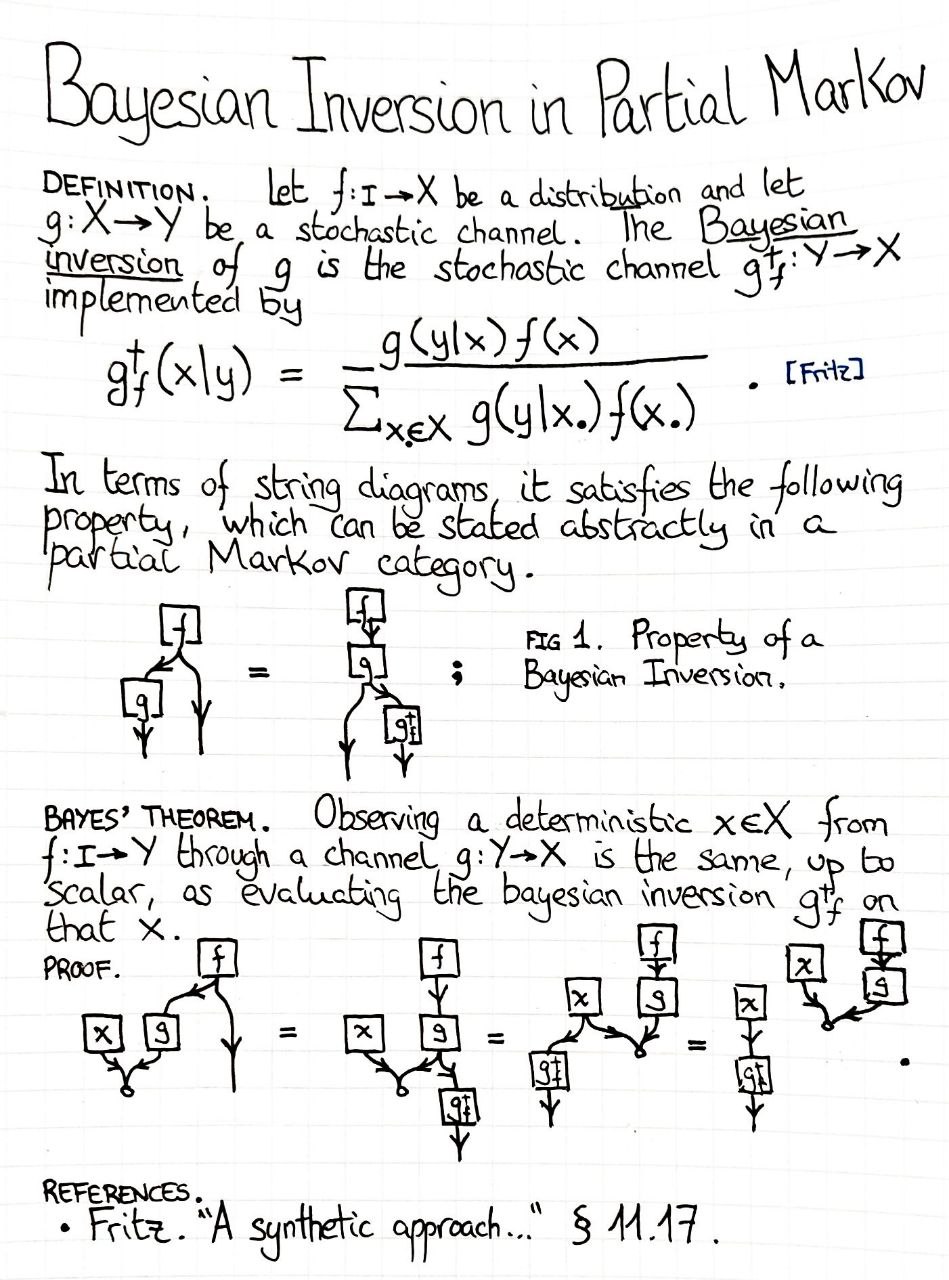 Bayesian Inversion in Partial Markov
DEFINITION. Let f: I → X be a distribution and let
g: X → Y be a stochastic channel. The Bayesian
inversion of g is the stochastic channel g†f : Y → X
implemented by
g†f(x|y) = g(y|x) f(x) / Σx•∈X g(y|x•) f(x•) . [Fritz]
In terms of string diagrams, it satisfies the following
property, which can be stated abstractly in a
partial Markov category.
f
g
=
f
g
g†f
;
FIG 1. Property of a
Bayesian Inversion.
BAYES' THEOREM. Observing a deterministic x∈X from
f: I → Y through a channel g: Y → X is the same, up to
scalar, as evaluating the bayesian inversion g†f on
that x.
PROOF.
f
x g
=
f
x g
g†f
=
f
x g
g†f
=
x
g†f
f
x g
.
REFERENCES.
• Fritz. "A synthetic approach..." § 11.17.